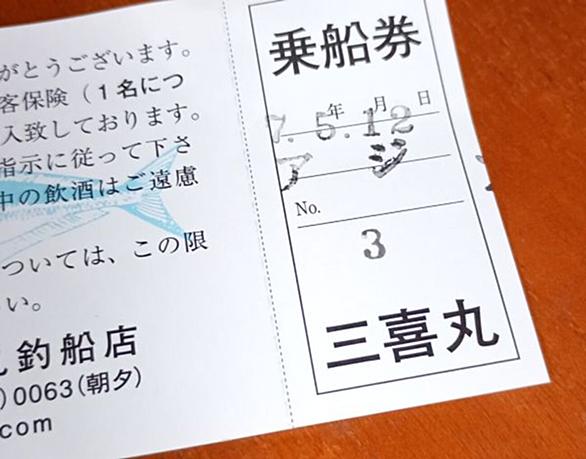 がとうございます。
客保険（1名につ
入致しております。
指示に従って下さ
中の飲酒はご遠慮
ついては、この限
い。
釣船店
)0063(朝夕)
com
乗船券
年 月 日
7.5.12
アジ
No.
3
三喜丸